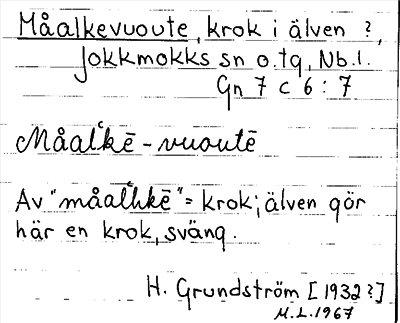 Måalkevuoute, krok i älven ?,
Jokkmokks sn o. tg, Nb. l.
Gn 7 C 6 : 7
Måalʽkē - vuoutē
Av "måalʽhkē" = krok; älven gör
här en krok, sväng.
H. Grundström [1932?]
M.L. 1967